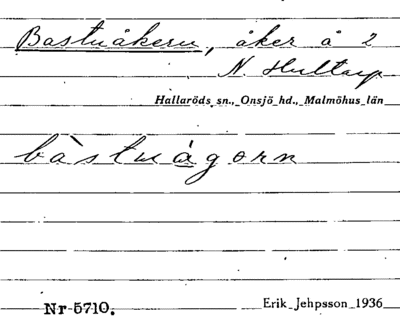 Bastuåkern, åker å 2
N. Hultarp
Hallaröds sn., Onsjö hd., Malmöhus län
bàstuågorn
Nr 5710.
Erik Jehpsson 1936